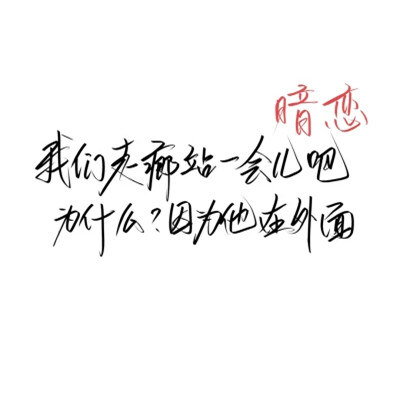 暗恋
我们走廊站一会儿吧
为什么？因为他在外面